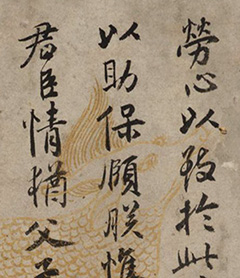 勞心以致於此
以助保頤朕惟
君臣情猶父子